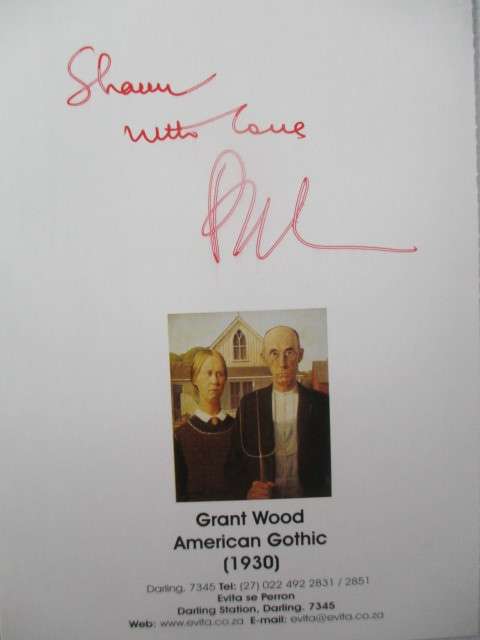 Shaun
with love
Grant Wood
American Gothic
(1930)
Darling, 7345 Tel: (27) 022 492 2831 / 2851
Evita se Perron
Darling Station, Darling. 7345
Web: www.evita.co.za E-mail: evita@evita.co.za